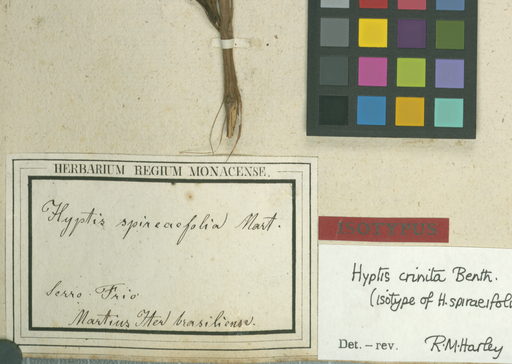 HERBARIUM REGIUM MONACENSE.
Hyptis spireaefolia Mart.
Serro-Frio
Martius Iter brasiliense.
ISOTYPUS
Hyptis crinita Benth.
(Isotype of H. spiraeifol
Det. – rev. R.M. Harley